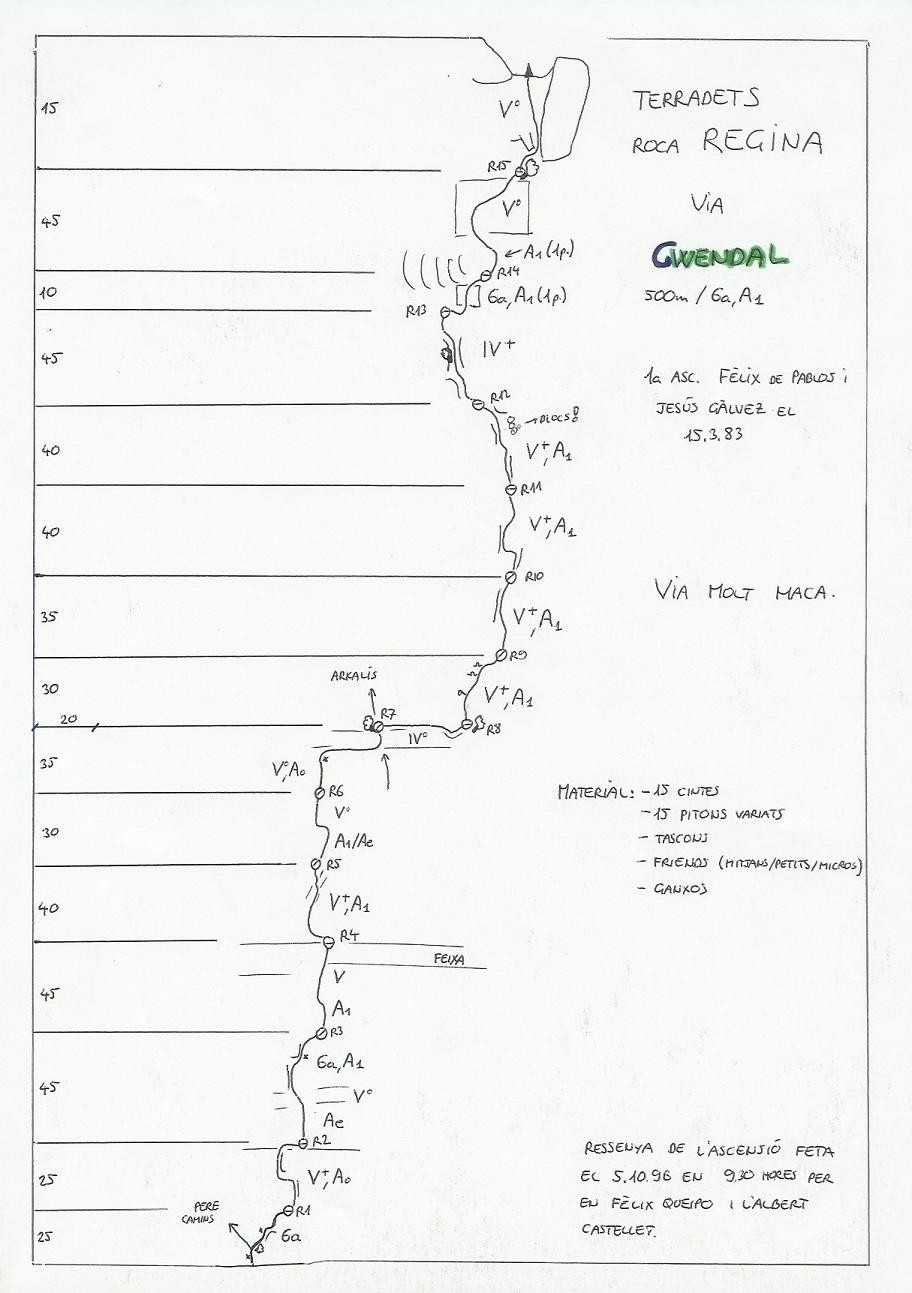 TERRADETS
ROCA REGINA
VIA
GWENDAL
500m / 6a, A1
1a ASC. FÈLIX DE PABLOS i
JESÚS GÀLVEZ EL
15.3.83
VIA MOLT MACA.
MATERIAL: - 15 CINTES
- 15 PITONS VARIATS
- TASCONS
- FRIENDS (MITJANS/PETITS/MICROS)
- GANXOS
RESSENYA DE L'ASCENSIÓ FETA
EL 5.10.96 EN 9.30 HORES PER
EN FÈLIX QUEIPO I L'ALBERT
CASTELLET.
15
V°
R15
45
V°
← A1 (1p.)
R14
10
6a, A1 (1p.)
R13
45
IV+
R12
→ BLOCS
40
V+, A1
R11
40
V+, A1
R10
35
V+, A1
R9
30
V+, A1
ARKALÍS
R7
20
R8
IV°
35
V°, A0
R6
V°
30
A1/Ae
R5
40
V+, A1
R4
FEIXA
V
45
A1
R3
6a, A1
45
V°
Ae
R2
25
V+, A0
PERE
CAMINS
R1
25
6a